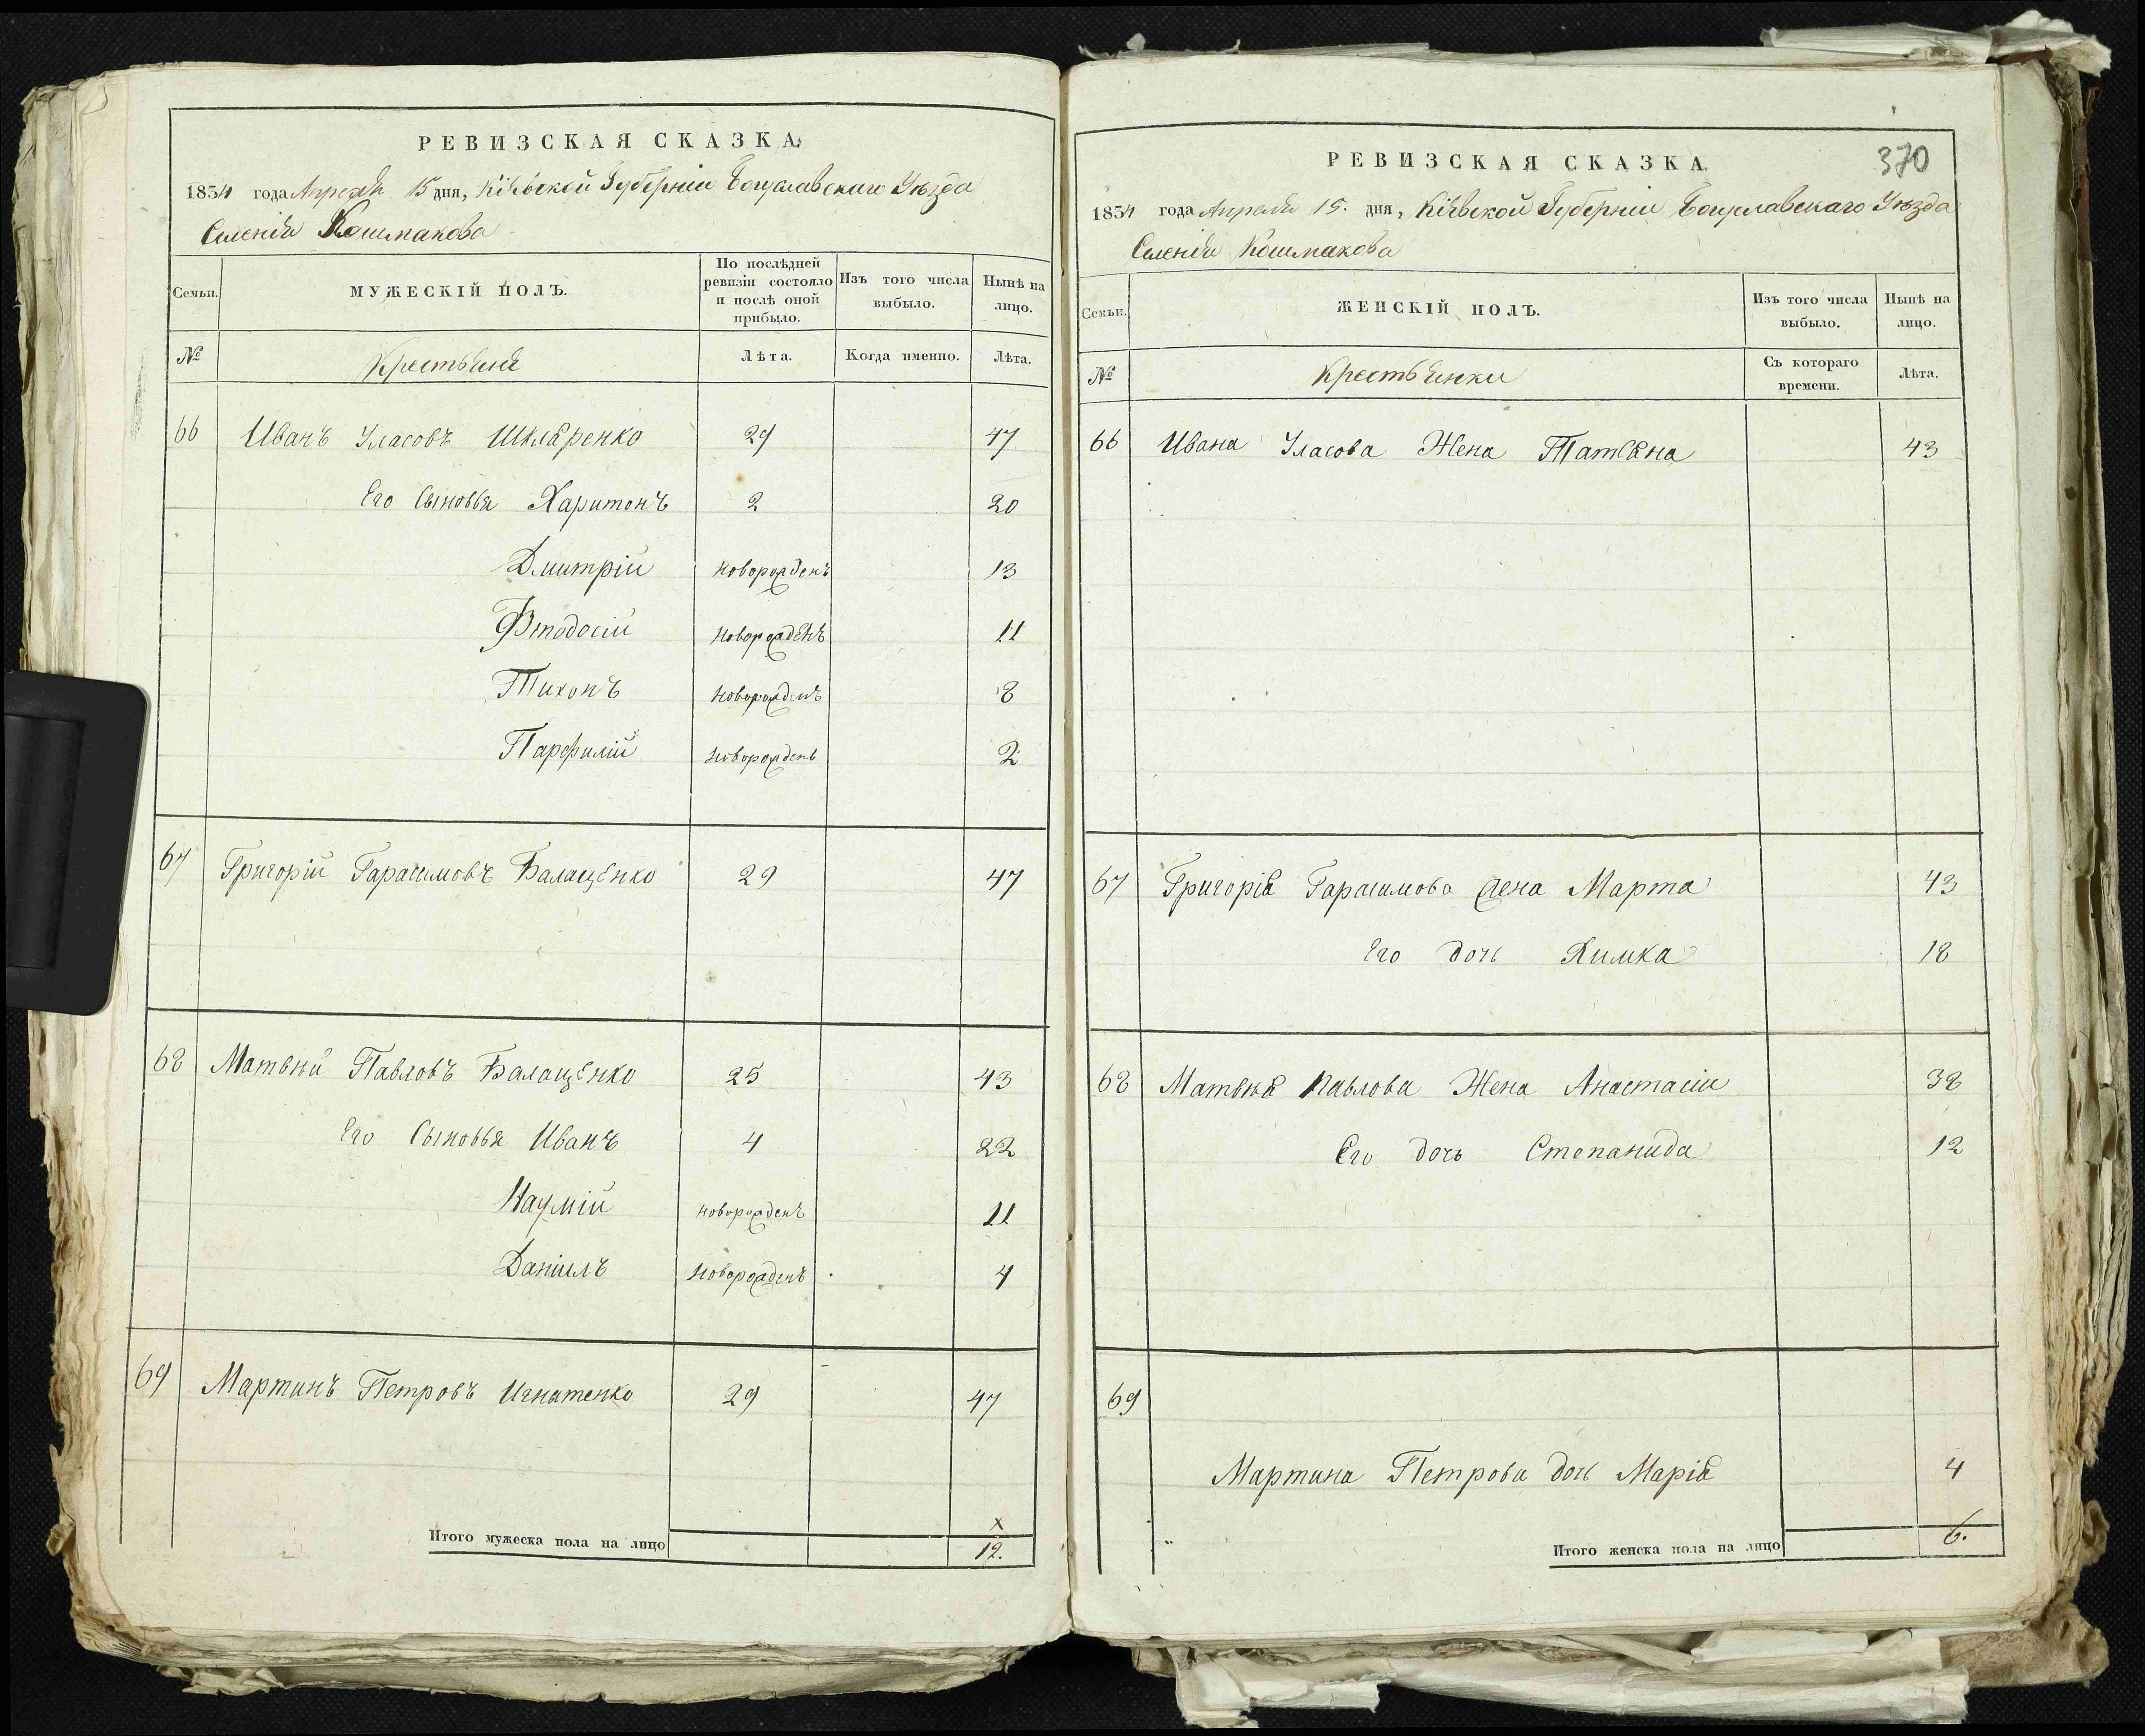 РЕВИЗСКАЯ СКАЗКА
1834 года Апреля 15 дня, Кіевской Губерніи Богуславскаго Уѣзда
Селенія Кошмакова
Семьи. МУЖЕСКІЙ ПОЛЪ. По послѣдней ревизіи состояло и послѣ оной прибыло. Изъ того числа выбыло. Нынѣ на лицо.
№ Крестьяне Лѣта. Когда именно. Лѣта.
66 Иванъ Уласовъ Шкляренко 29 47
Его Сыновья Харитонъ 2 20
Дмитрій новорожденъ 13
Фтодосій новорожденъ 11
Тихонъ новорожденъ 8
Парфилій новорожденъ 2
67 Григорій Гарасимовъ Балащенко 29 47
68 Матвѣй Павловъ Балащенко 25 43
Его Сыновья Иванъ 4 22
Наумій новорожденъ 11
Даніилъ новорожденъ 4
69 Мартинъ Петровъ Игнатенко 29 47
х
Итого мужеска пола на лицо 12.
370
РЕВИЗСКАЯ СКАЗКА
1834 года Апреля 15. дня, Кіевской Губерніи Богуславскаго Уѣзда
Селенія Кошмакова
Семьи. ЖЕНСКІЙ ПОЛЪ. Изъ того числа выбыло. Нынѣ на лицо.
№ Крестьянки Съ котораго времени. Лѣта.
66 Ивана Уласова Жена Татьяна 43
67 Григорія Гарасимова жена Марта 43
Его дочь Химка 18
68 Матвѣя Павлова Жена Анастасія 38
Его дочь Степанида 12
69
Мартина Петрова дочь Марія 4
Итого женска пола на лицо 6.